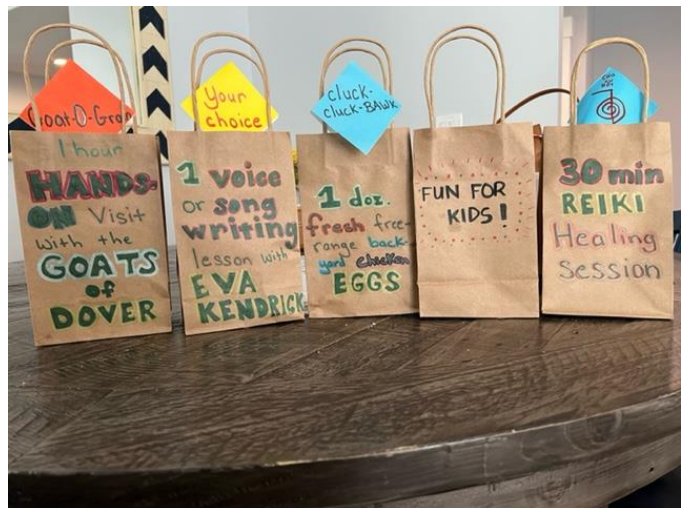 Goat-O-Gram
1 hour
HANDS-
ON Visit
with the
GOATS
of
DOVER
Your
choice
1 voice
or song
writing
lesson with
EVA
KENDRICK
cluck-
cluck-BAWK
1 doz.
fresh free-
range back-
yard chicken
EGGS
FUN FOR
KIDS!
30 min
REIKI
Healing
Session